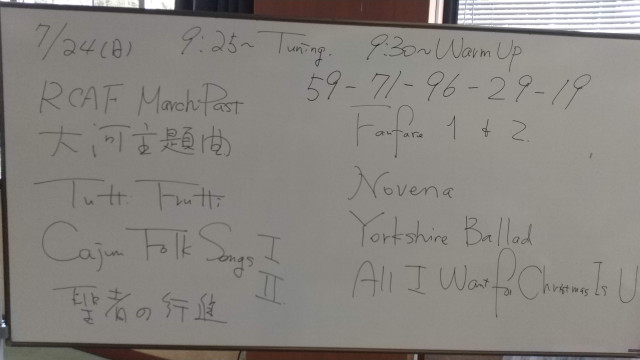 7/24(日) 9:25~ Tuning. 9:30~ Warm Up
59-71-96-29-19
RCAF March Past
大河主題曲
Tutti Frutti
Cajun Folk Songs I
II
聖者の行進
Fanfare 1 & 2
Novena
Yorkshire Ballad
All I Want for Christmas Is U